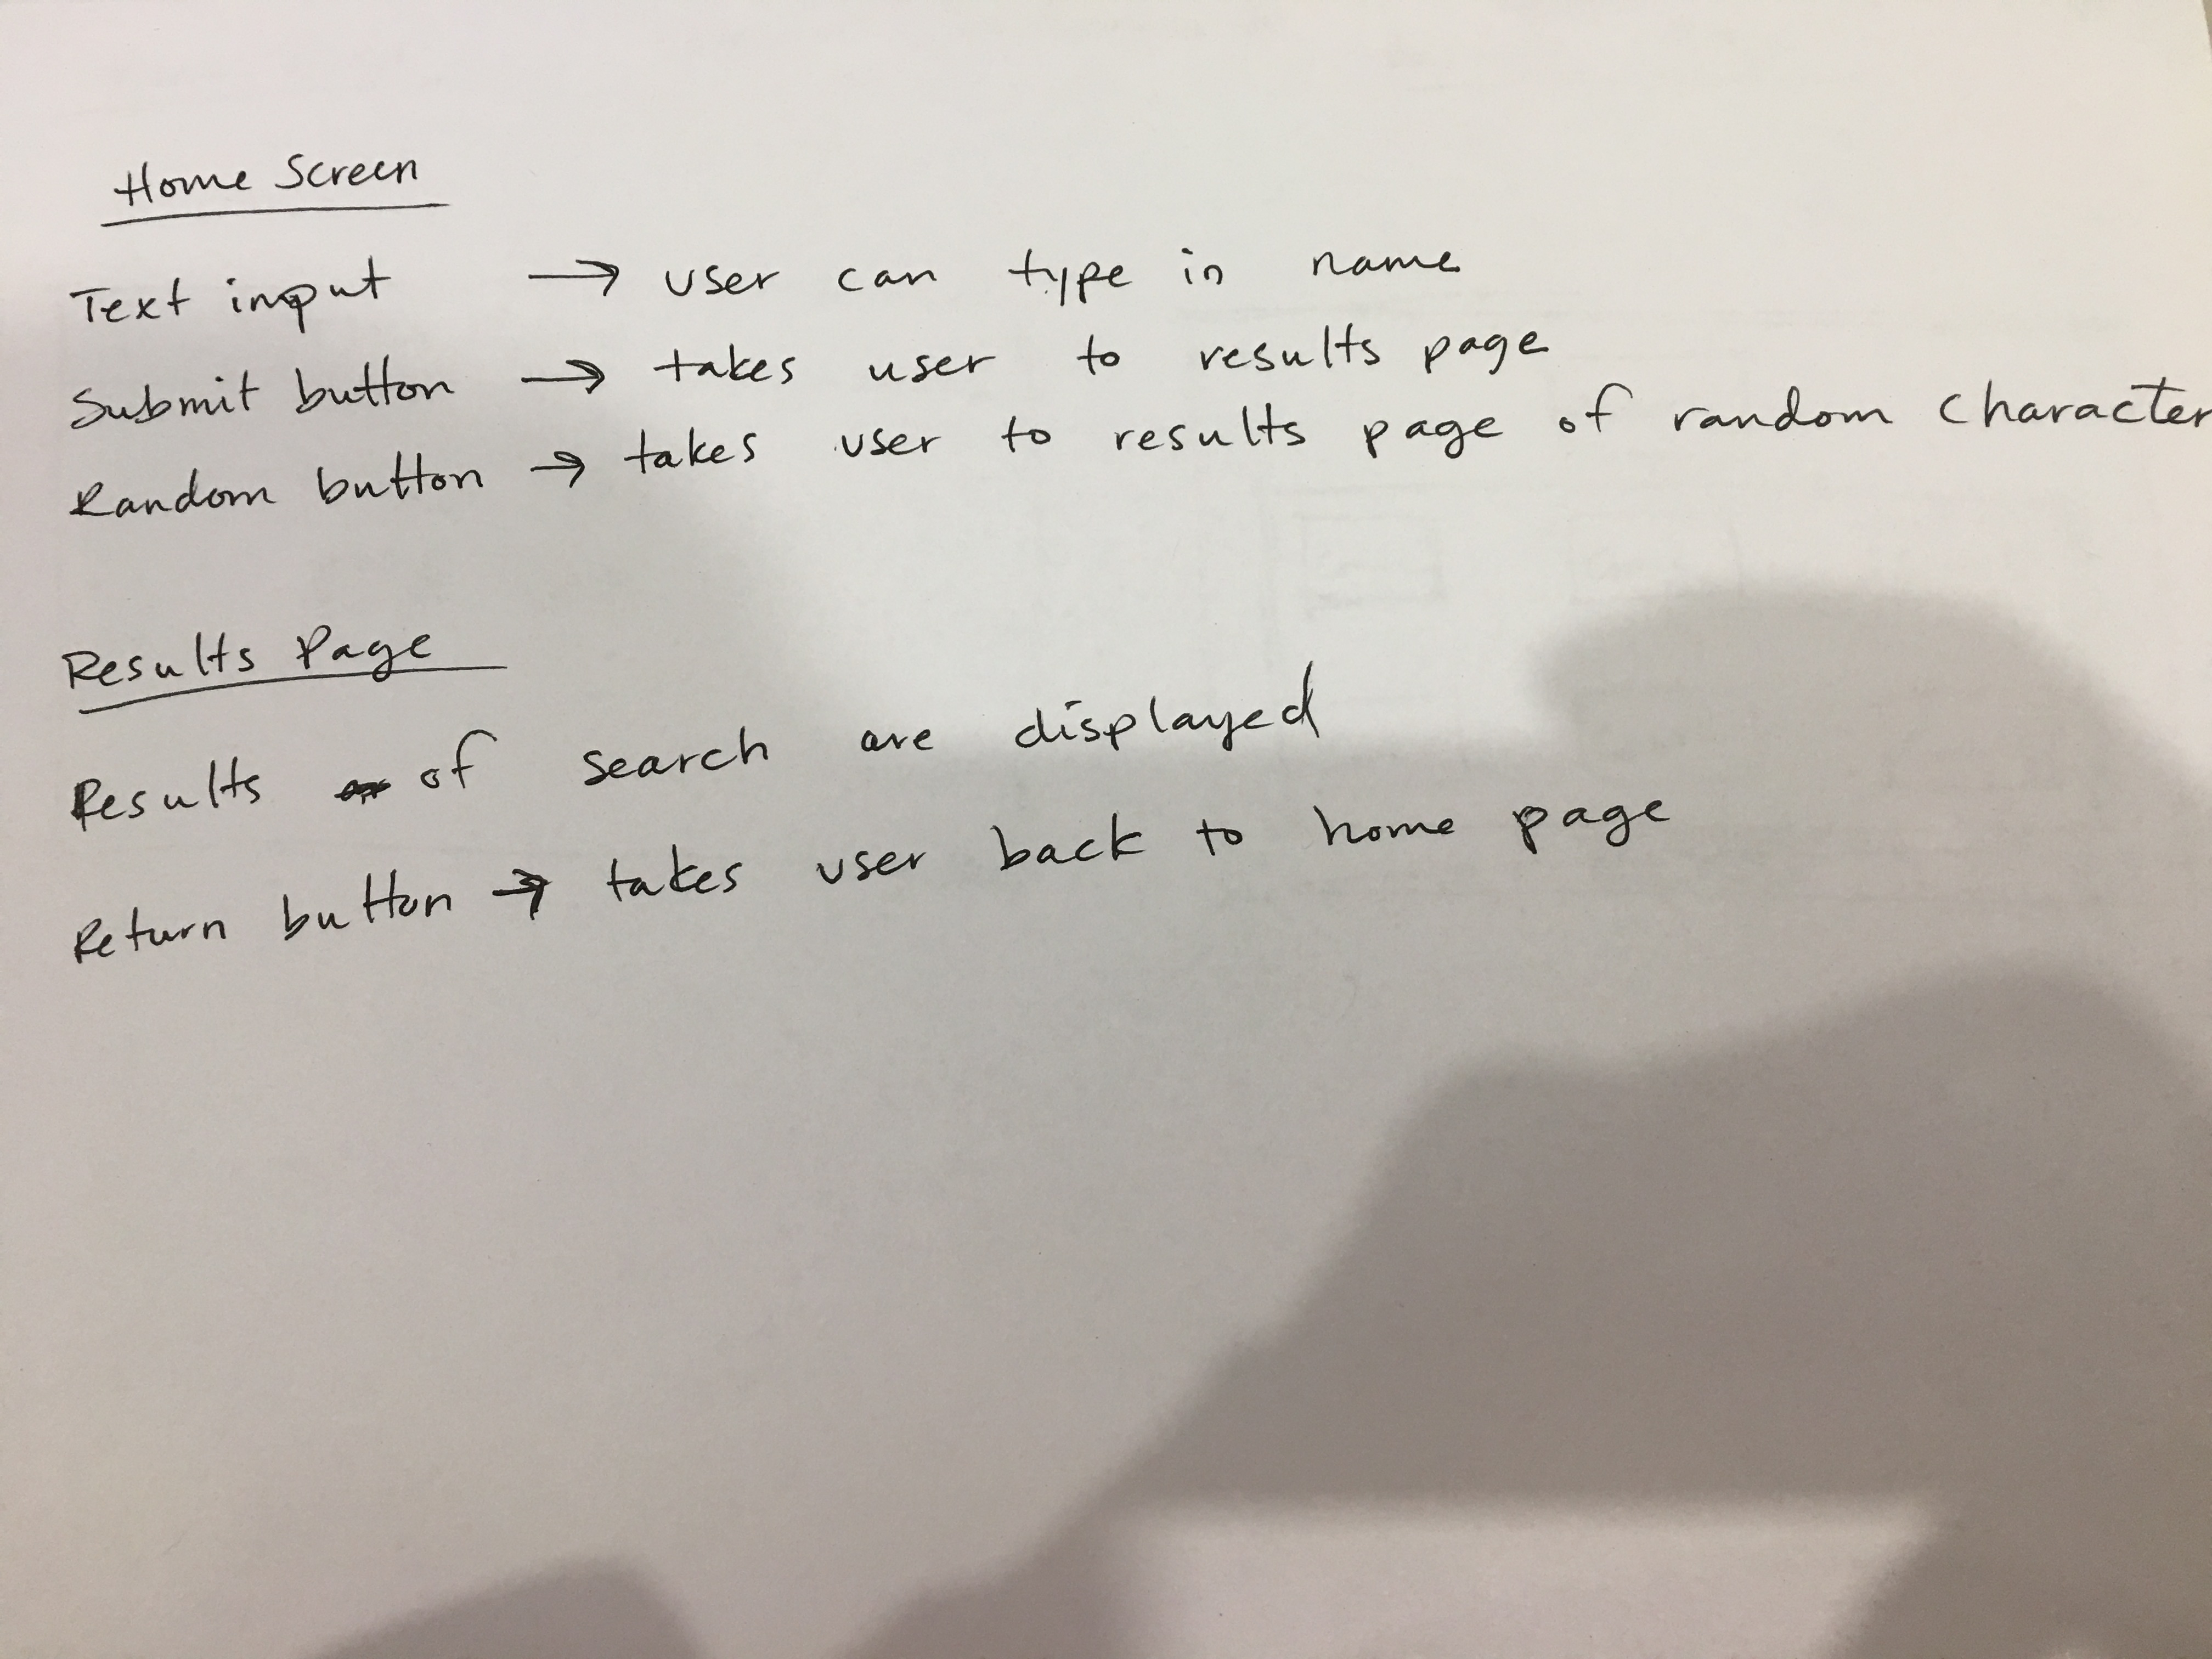 Home Screen
Text input → user can type in name
Submit button → takes user to results page
Random button → takes user to results page of random character
Results Page
Results of search are displayed
Return button → takes user back to home page